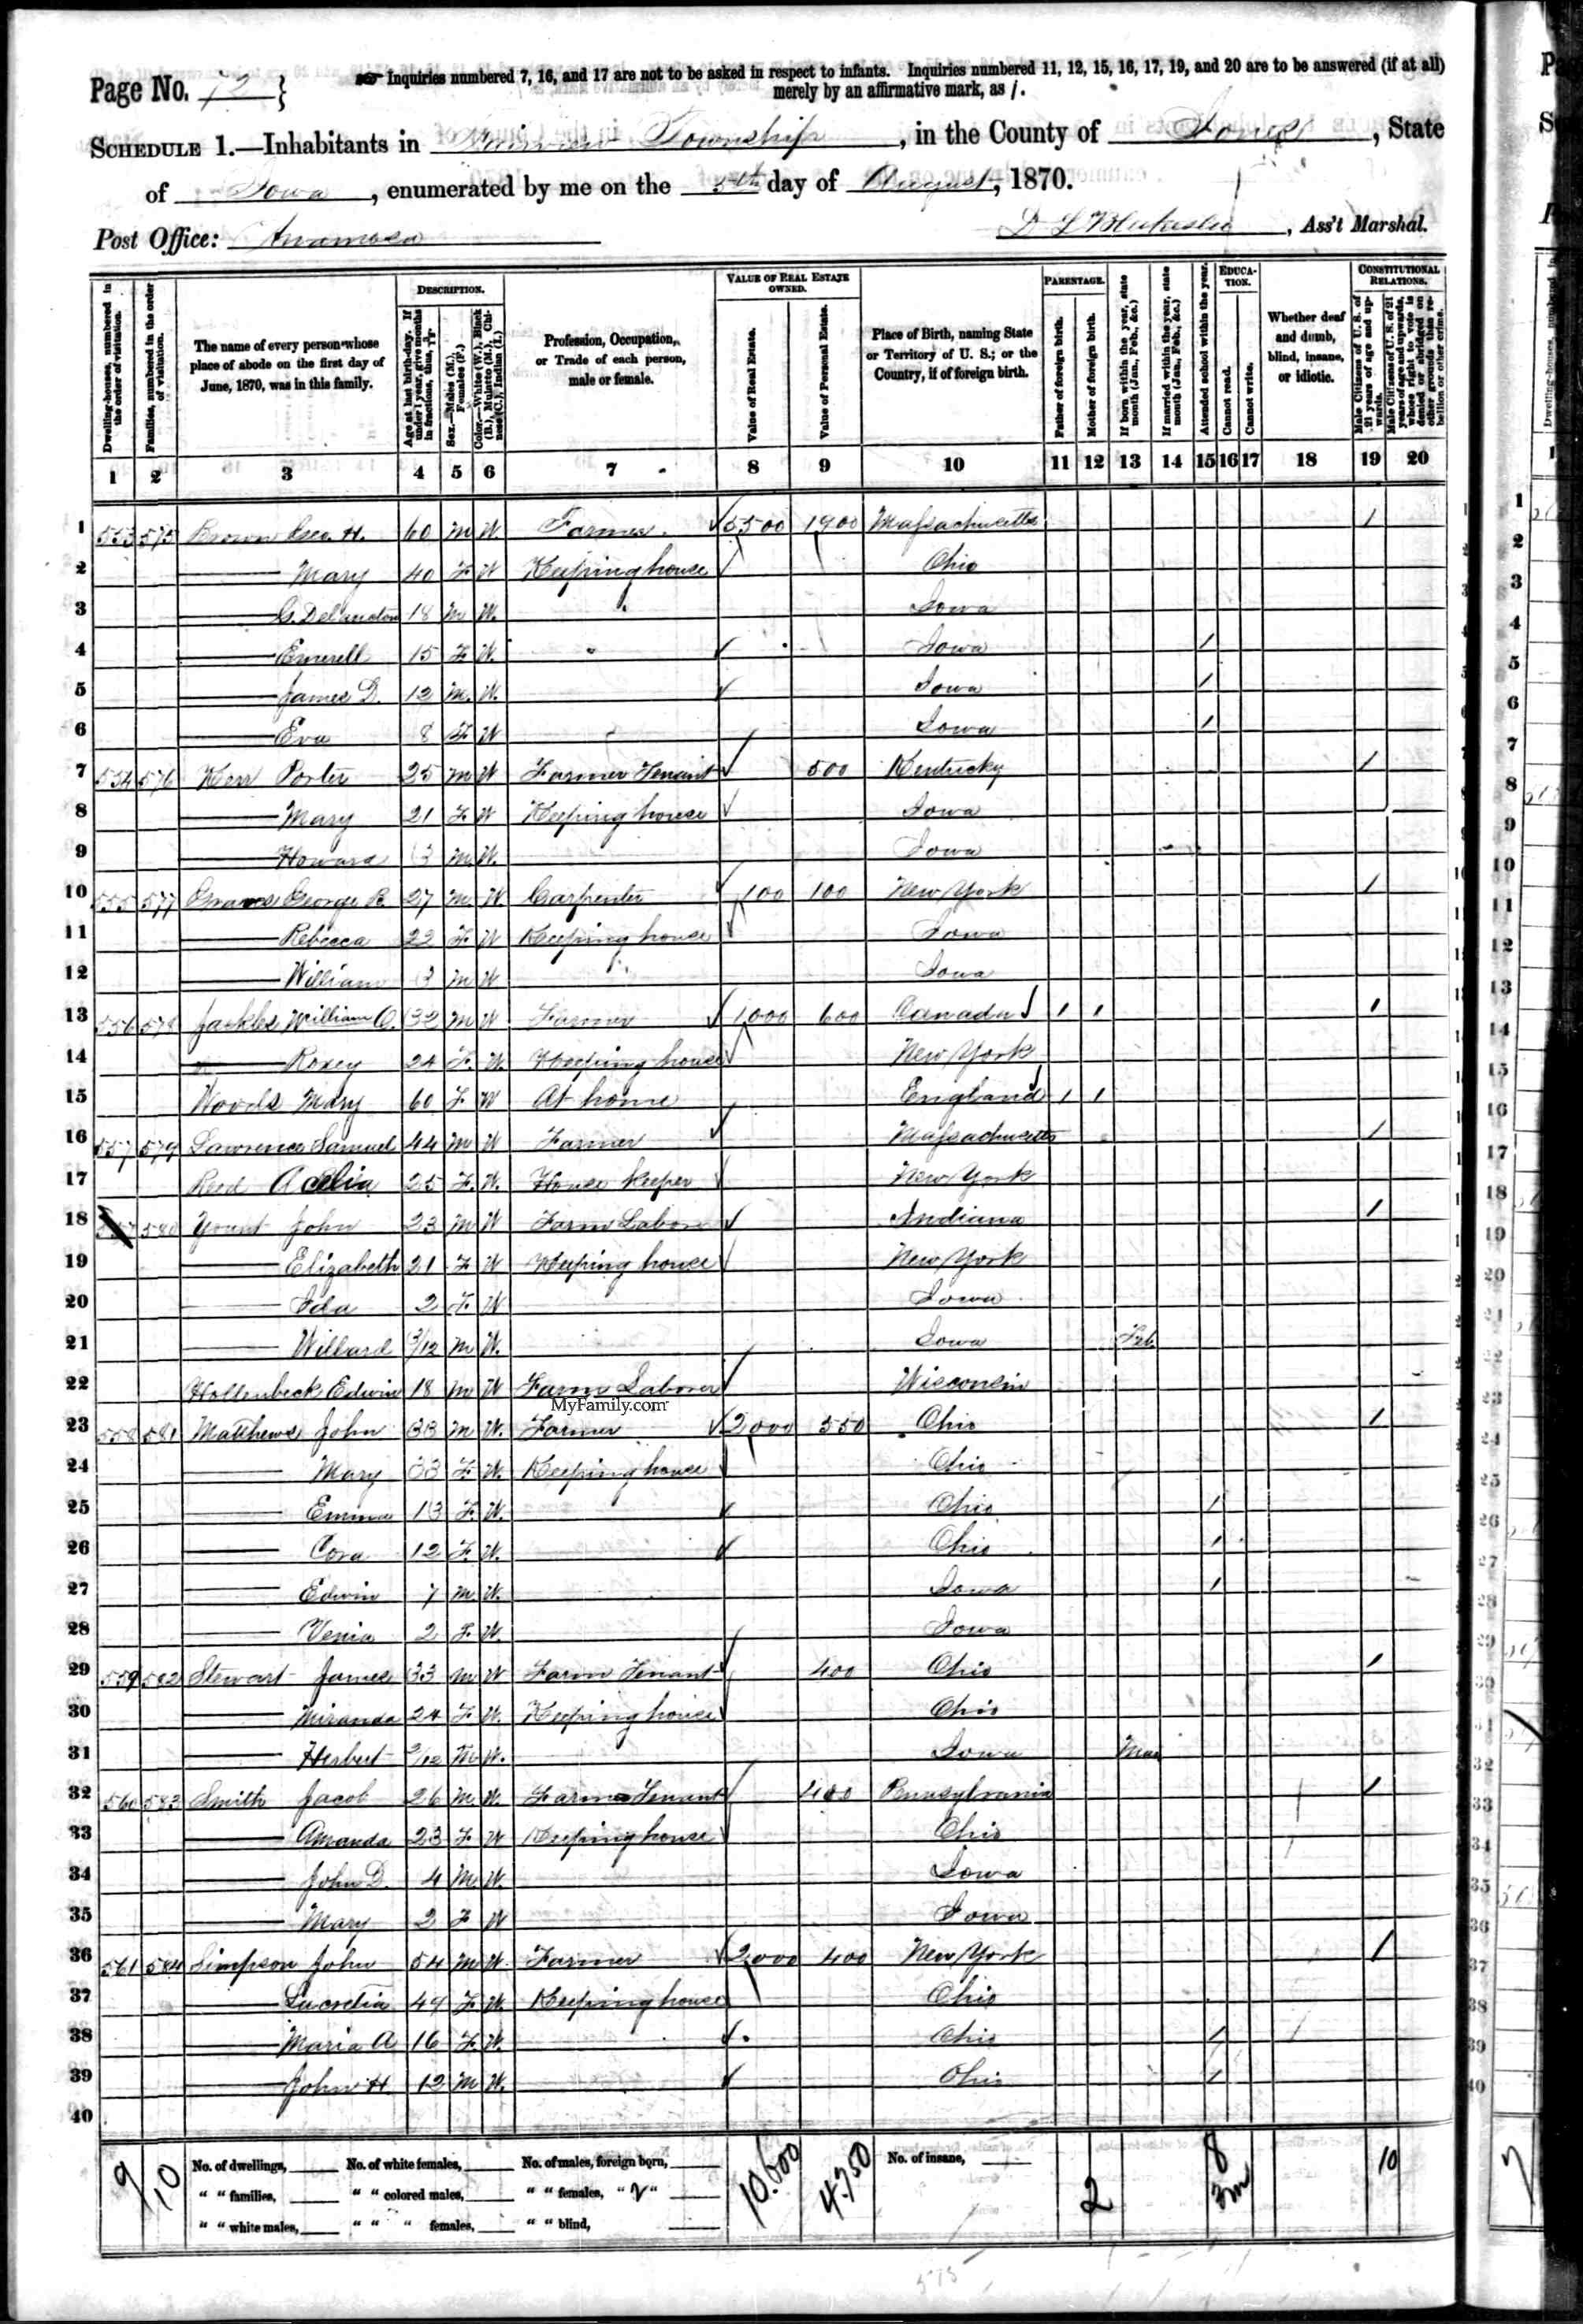 Page No. 72 }
Inquiries numbered 7, 16, and 17 are not to be asked in respect to infants. Inquiries numbered 11, 12, 15, 16, 17, 19, and 20 are to be answered (if at all)
merely by an affirmative mark, as /.
SCHEDULE 1.—Inhabitants in Fairview Township, in the County of Jones, State
of Iowa, enumerated by me on the 5th day of August, 1870.
Post Office: Anamosa
D L Blakeslee, Ass't Marshal.
Dwelling-houses, numbered in the order of visitation.
Families, numbered in the order of visitation.
The name of every person whose place of abode on the first day of June, 1870, was in this family.
DESCRIPTION.
Age at last birth-day. If under 1 year, give months in fractions, thus, 3/12
Sex.—Males (M.), Females (F.)
Color.—White (W.), Black (B.), Mulatto (M.), Chinese (C.), Indian (I.)
Profession, Occupation, or Trade of each person, male or female.
VALUE OF REAL ESTATE OWNED.
Value of Real Estate.
Value of Personal Estate.
Place of Birth, naming State or Territory of U. S.; or the Country, if of foreign birth.
PARENTAGE.
Father of foreign birth.
Mother of foreign birth.
If born within the year, state month (Jan. Feb., &c.)
If married within the year, state month (Jan. Feb., &c.)
Attended school within the year.
EDUCATION.
Cannot read.
Cannot write.
Whether deaf and dumb, blind, insane, or idiotic.
CONSTITUTIONAL RELATIONS.
Male Citizens of U. S. of 21 years of age and upwards.
Male Citizens of U. S. of 21 years of age and upwards, whose right to vote is denied or abridged on other grounds than rebellion or other crime.
1 2 3 4 5 6 7 8 9 10 11 12 13 14 15 16 17 18 19 20
1 553 575 Brown Geo. H. 60 M W Farmer 5500 1900 Massachusetts /
2 —— Mary 40 F W Keeping house Ohio
3 —— G. 18 M W. Iowa
4 —— 15 F W. Iowa /
5 —— James D. 12 M. W. Iowa /
6 —— Eva 8 F W Iowa /
7 554 576 Kerr Porter 25 M W Farmer Tenant 500 Kentucky /
8 —— Mary 21 F W Keeping house Iowa
9 —— Howard 3 M W. Iowa
10 555 577 Graves George R. 27 M W. Carpenter 100 100 New York /
11 —— Rebecca 22 F W Keeping house Iowa
12 —— William 3 M W Iowa
13 556 578 William O. 32 M W Farmer 1000 600 Canada / / /
14 —— Roxey 24 F. W. Keeping house New York
15 Woods Mary 60 F W At home England / /
16 557 579 Lawrence Samuel 44 M W Farmer Massachusetts /
17 Reed 25 F. W. House keeper New York
18 557 580 Yount John 23 M W Farm Labor Indiana /
19 —— Elizabeth 21 F W Keeping house New York
20 —— Ida 2 F. W Iowa
21 —— Willard 3/12 M W. Iowa Feb.
22 Hollenbeck Edwin 18 M W Farm Laborer Wisconsin
MyFamily.com
23 558 581 Matthews John 33 M W. Farmer 2,000 550 Ohio /
24 —— Mary 33 F. W. Keeping house Ohio
25 —— Emma 13 F. W. Ohio /
26 —— Cora 12 F. W. Ohio /
27 —— Edwin 7 M W. Iowa /
28 —— Venia 2 F. W. Iowa
29 559 582 Stewart James 33 M W Farm Tenant 400 Ohio /
30 —— Miranda 24 F W. Keeping house Ohio
31 —— Herbert 3/12 M W. Iowa Mar
32 560 583 Smith Jacob 26 M W. Farm Tenant 400 Pennsylvania /
33 —— Amanda 23 F. W Keeping house Ohio
34 —— John D. 4 M. W. Iowa
35 —— Mary 2 F W Iowa
36 561 584 Simpson John 54 M W. Farmer 2,000 400 New York /
37 —— Lucretia 49 F. W. Keeping house Ohio
38 —— Maria A 16 F. W. Ohio /
39 —— John H 12 M W. Ohio /
40
9 10 No. of dwellings, No. of white females, No. of males, foreign born, 10,600 4,750 No. of insane, 2 8 10
" " families, " " colored males, " " females, " "
" " white males, " " " females, " " blind,
575